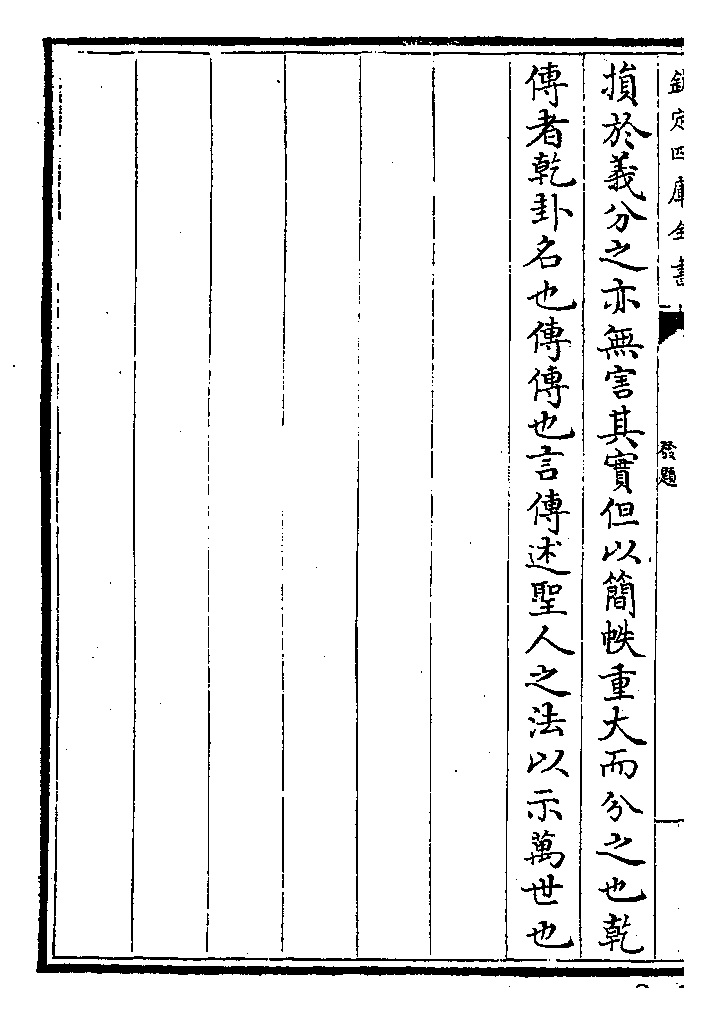 欽定四庫全書
發題
損於義分之亦無害其實但以簡帙重大而分之也乾
傳者乾卦名也傳傳也言傳述聖人之法以示萬世也